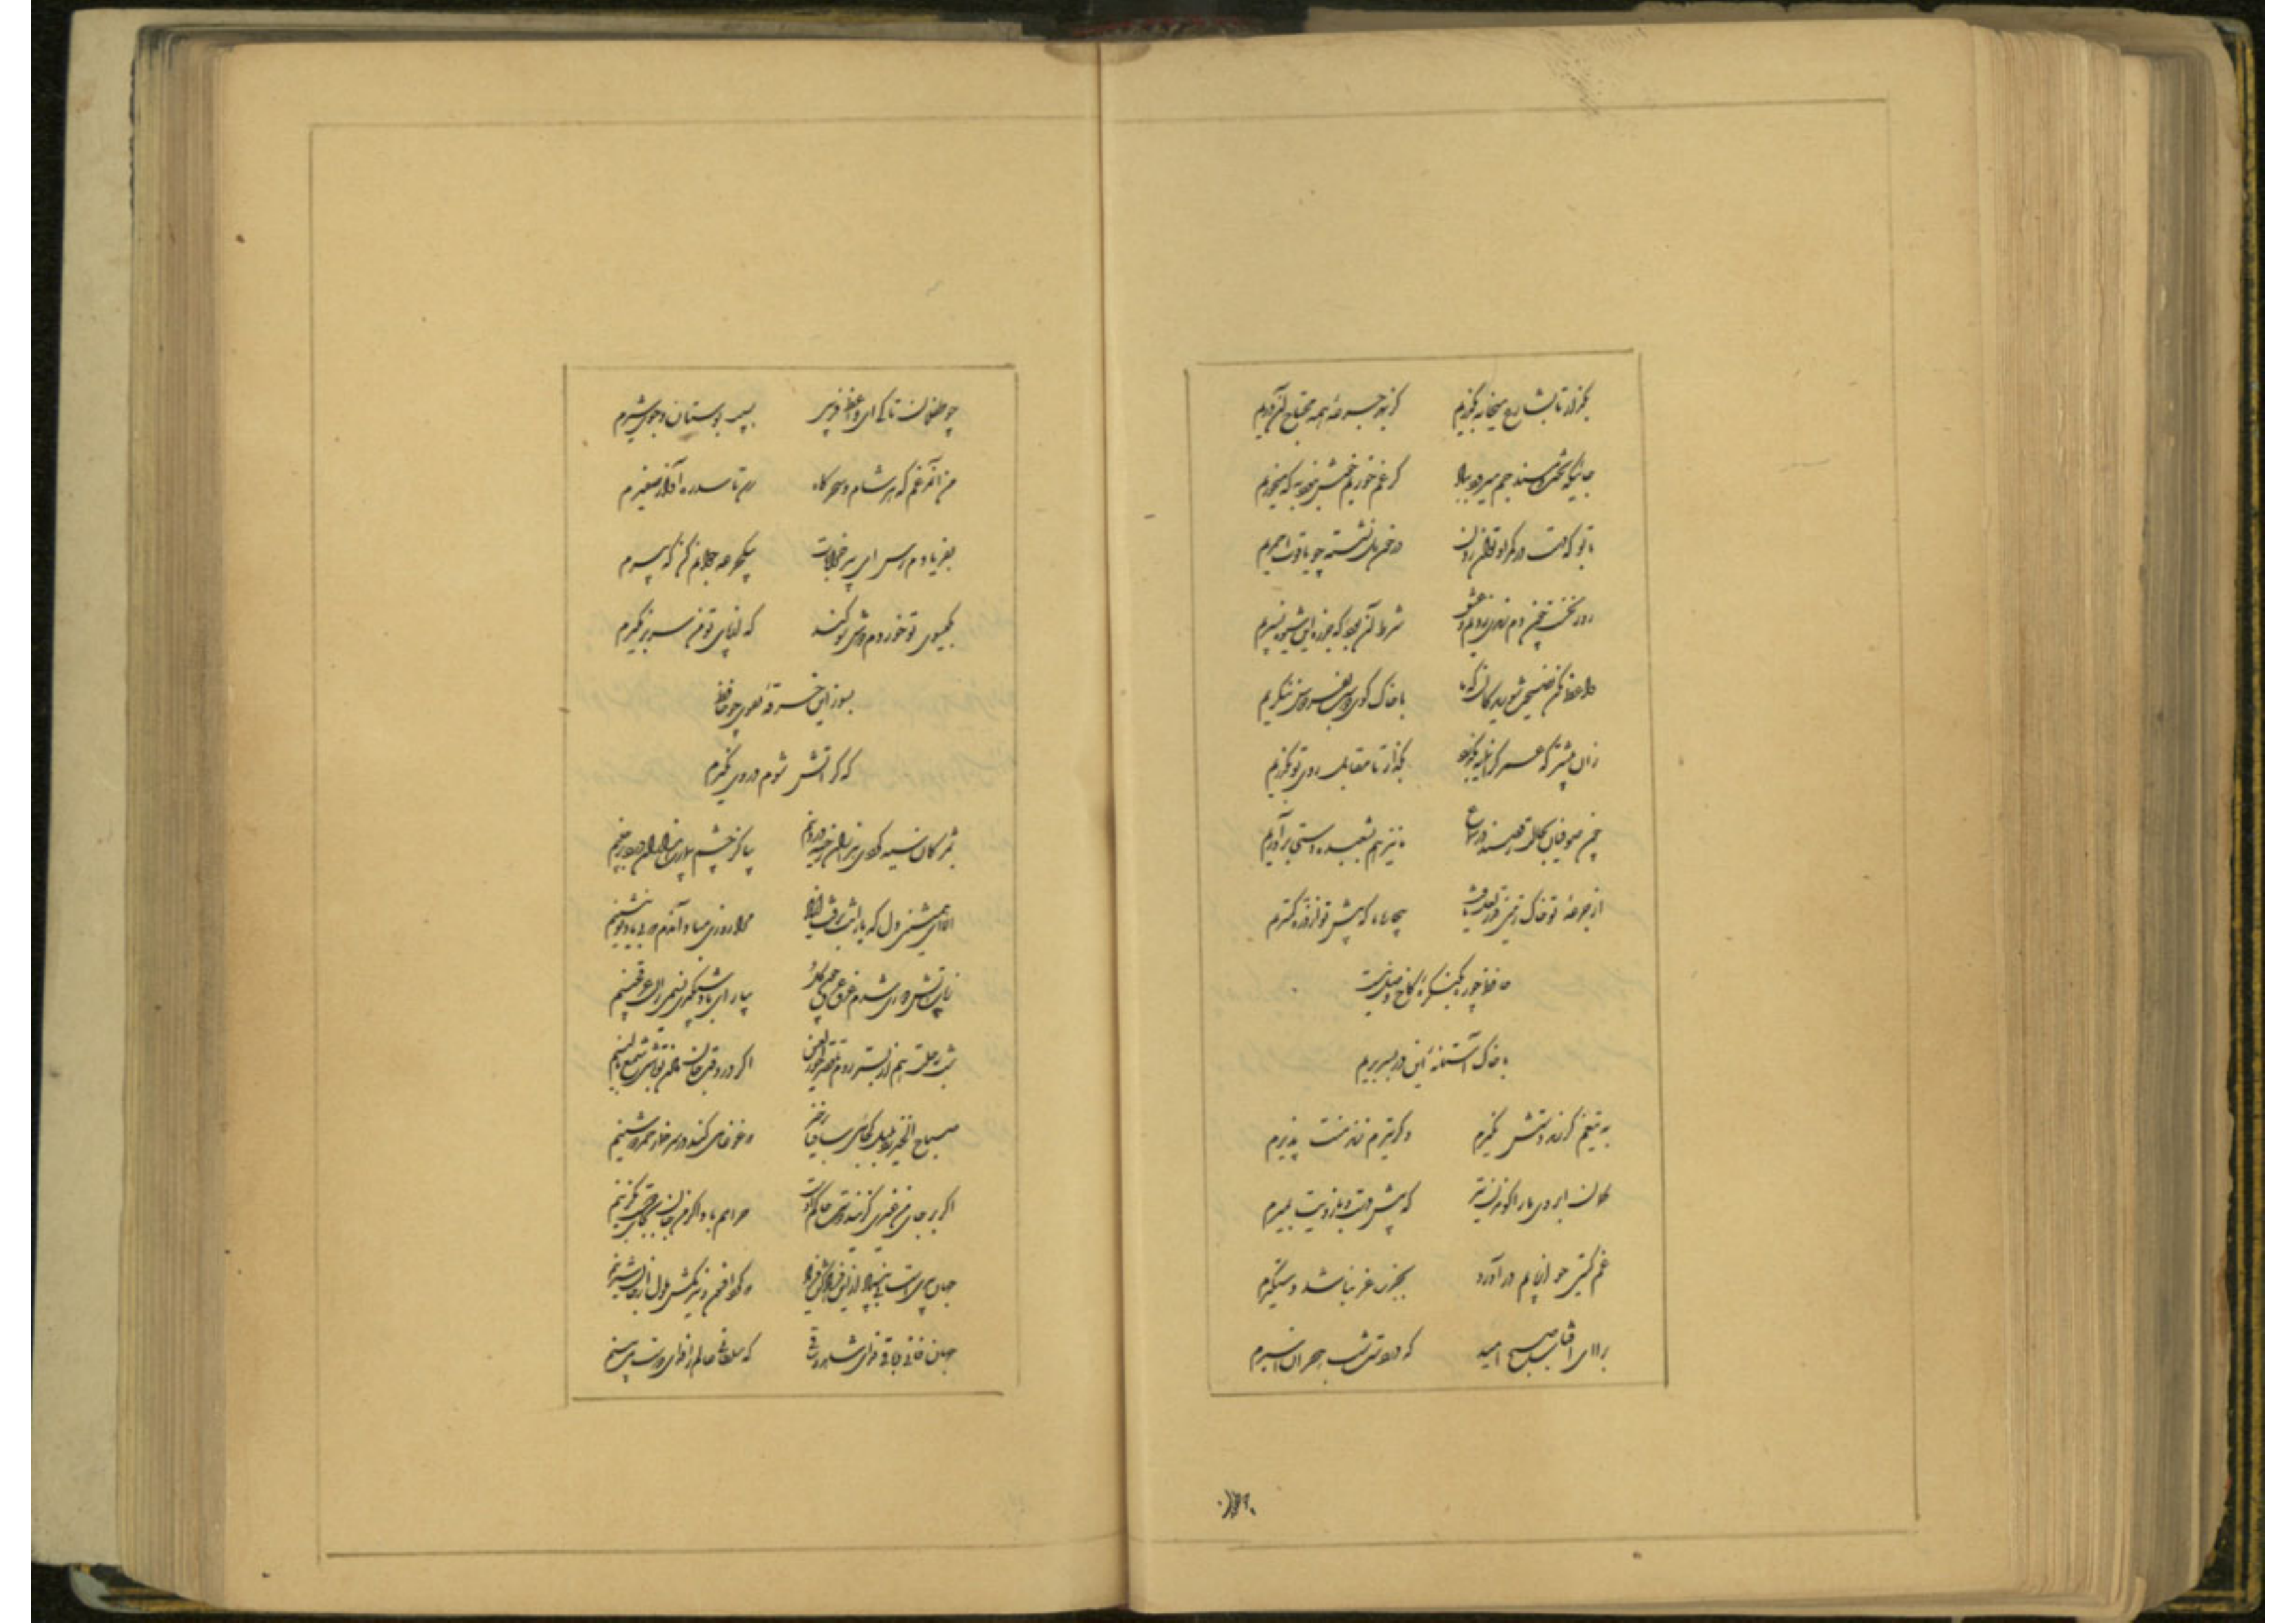 بگذار تا بشارع میخانه بگذریم کز بهر جرعهٔ همه محتاج آن دریم
جائیکه تخت و مسند جم میرود بباد گر غم خوریم خوش نبود به که میخوریم
تا بو که دست در کمر او توان زدن در خون دل نشسته چو یاقوت احمریم
روز نخست چون دم رندی زدیم و عشق شرط آن بود که جز ره این شیوه نسپریم
واعظ مکن نصیحت شوریدگان که ما با خاک کوی دوست بفردوس ننگریم
زان پیشتر که عمر گرانمایه بگذرد بگذار تا مقابل روی تو بگذریم
چون صوفیان بحالت رقصند در سماع ما نیز هم بشعبده دستی برآوریم
از جرعهٔ تو خاک زمین قدر لعل یافت بیچاره ما که پیش تو از ذره کمتریم
حافظ چو ره بکنگرهٔ کاخ وصل نیست
با خاک آستانهٔ این در بسر بریم
به تیغم گر زند دستش نگیرم وگر تیرم زند منت پذیرم
کمان ابروی ما را گو بزن تیر که پیش دست و بازویت بمیرم
غم گیتی چو از پایم درآورد بجز ساغر نباشد دستگیرم
برآ ای آفتاب صبح امید که در دست شب هجران اسیرم
چو طفلان تا کی ای واعظ فریبی بسیب بوستان و جوی شیرم
من آن مرغم که هر شام و سحرگاه ز بام سدره آید صفیرم
بفریادم رس ای پیر خرابات بیک جرعه جوانم کن که پیرم
بگیسوی تو خوردم دوش سوگند که از پای تو من سر برنگیرم
بسوز این خرقهٔ تقوی چو حافظ
که گر آتش شوم در وی نگیرم
بمژگان سیه کردی هزاران رخنه در دینم بیا کز چشم بیمارت هزاران درد برچینم
الا ای همنشین دل که یارانت برفت از یاد مرا روزی مباد آندم که بی یاد تو بنشینم
ز تاب آتش دوری شدم غرق عرق چون گل بیار ای باد شبگیری نسیمی زان عرقچینم
شب رحلت هم از بستر روم تا قصر حورالعین اگر در وقت جان دادن تو باشی شمع بالینم
صباح الخیر زد بلبل کجائی ساقیا برخیز که غوغا می کند در سر خمار خمر دوشینم
اگر بر جای من غیری گزیند دوست حاکم اوست حرامم باد اگر من جان بجای دوست بگزینم
جهان پیر است و بی بنیاد از این فرهادکش فریاد که کرد افسون و نیرنگش ملول از جان شیرینم
جهان فانی و باقی فدای شاهد و ساقی که سلطانی عالم را فدای دوست می بینم